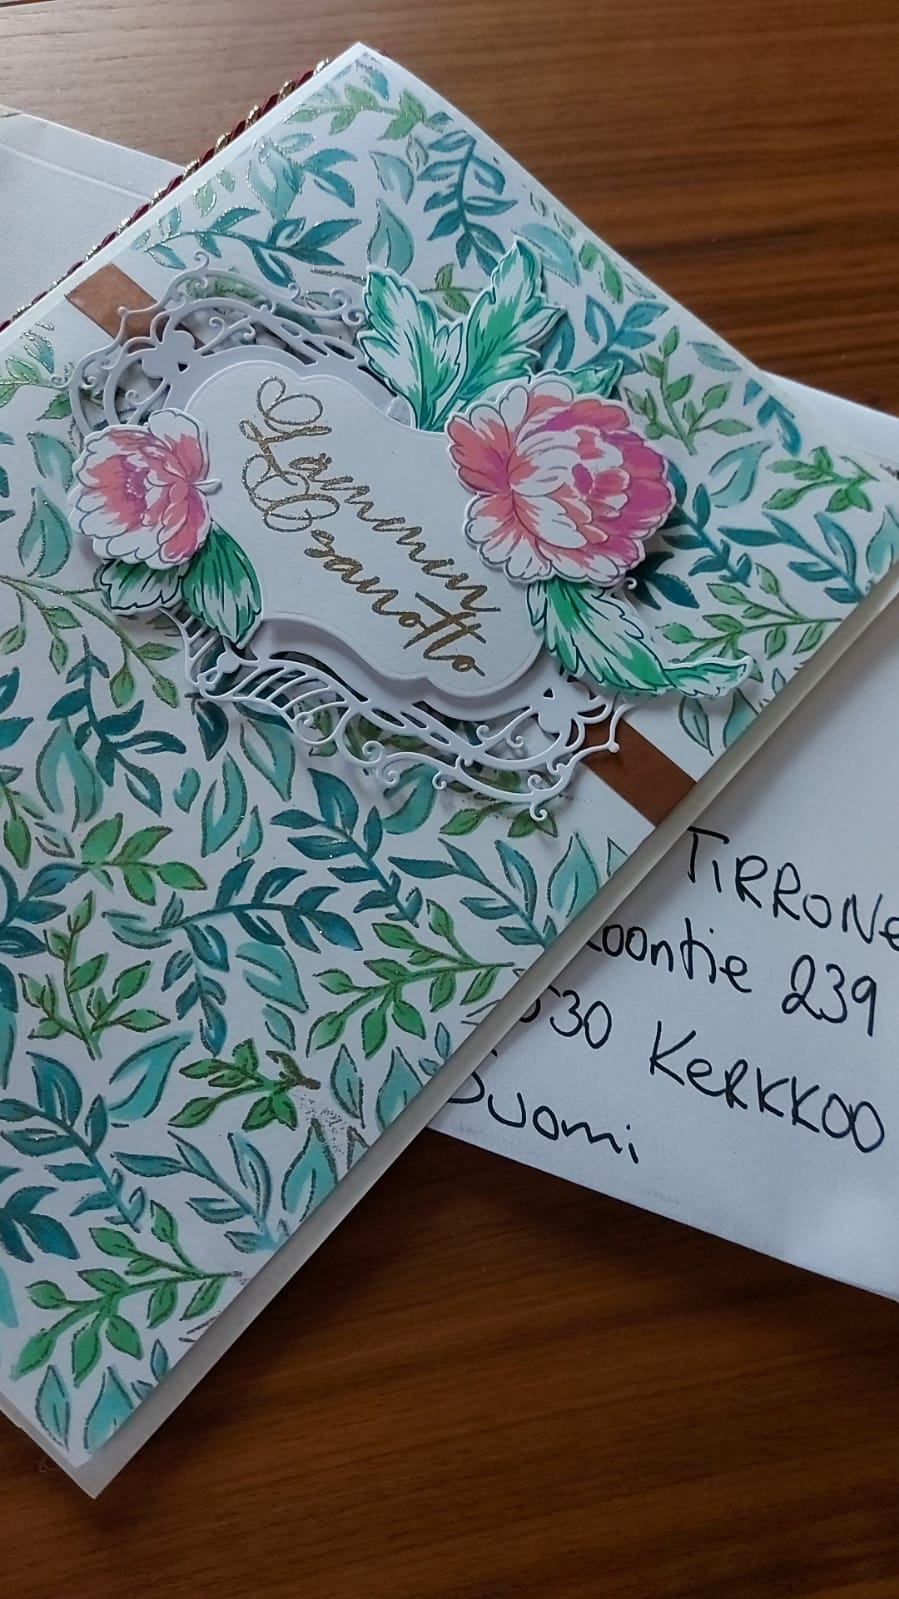 Lämmin
Osanotto
TIRRONe
oontie 239
530 KeRKKOO
Suomi